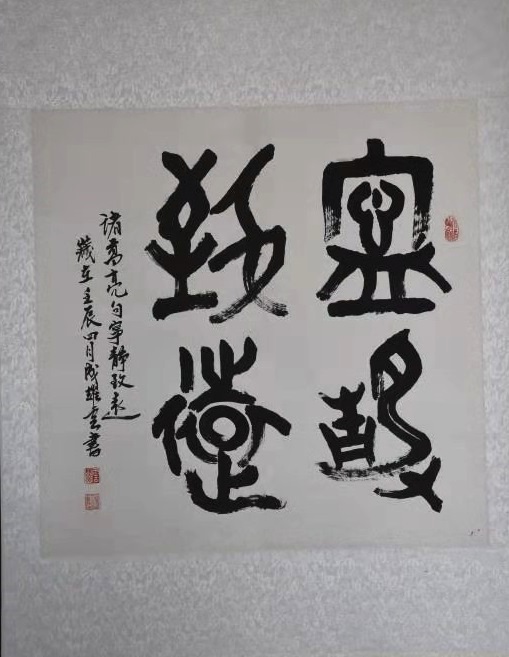 寧靜
致遠
诸葛亮句寧靜致远
歲在壬辰四月成雄書